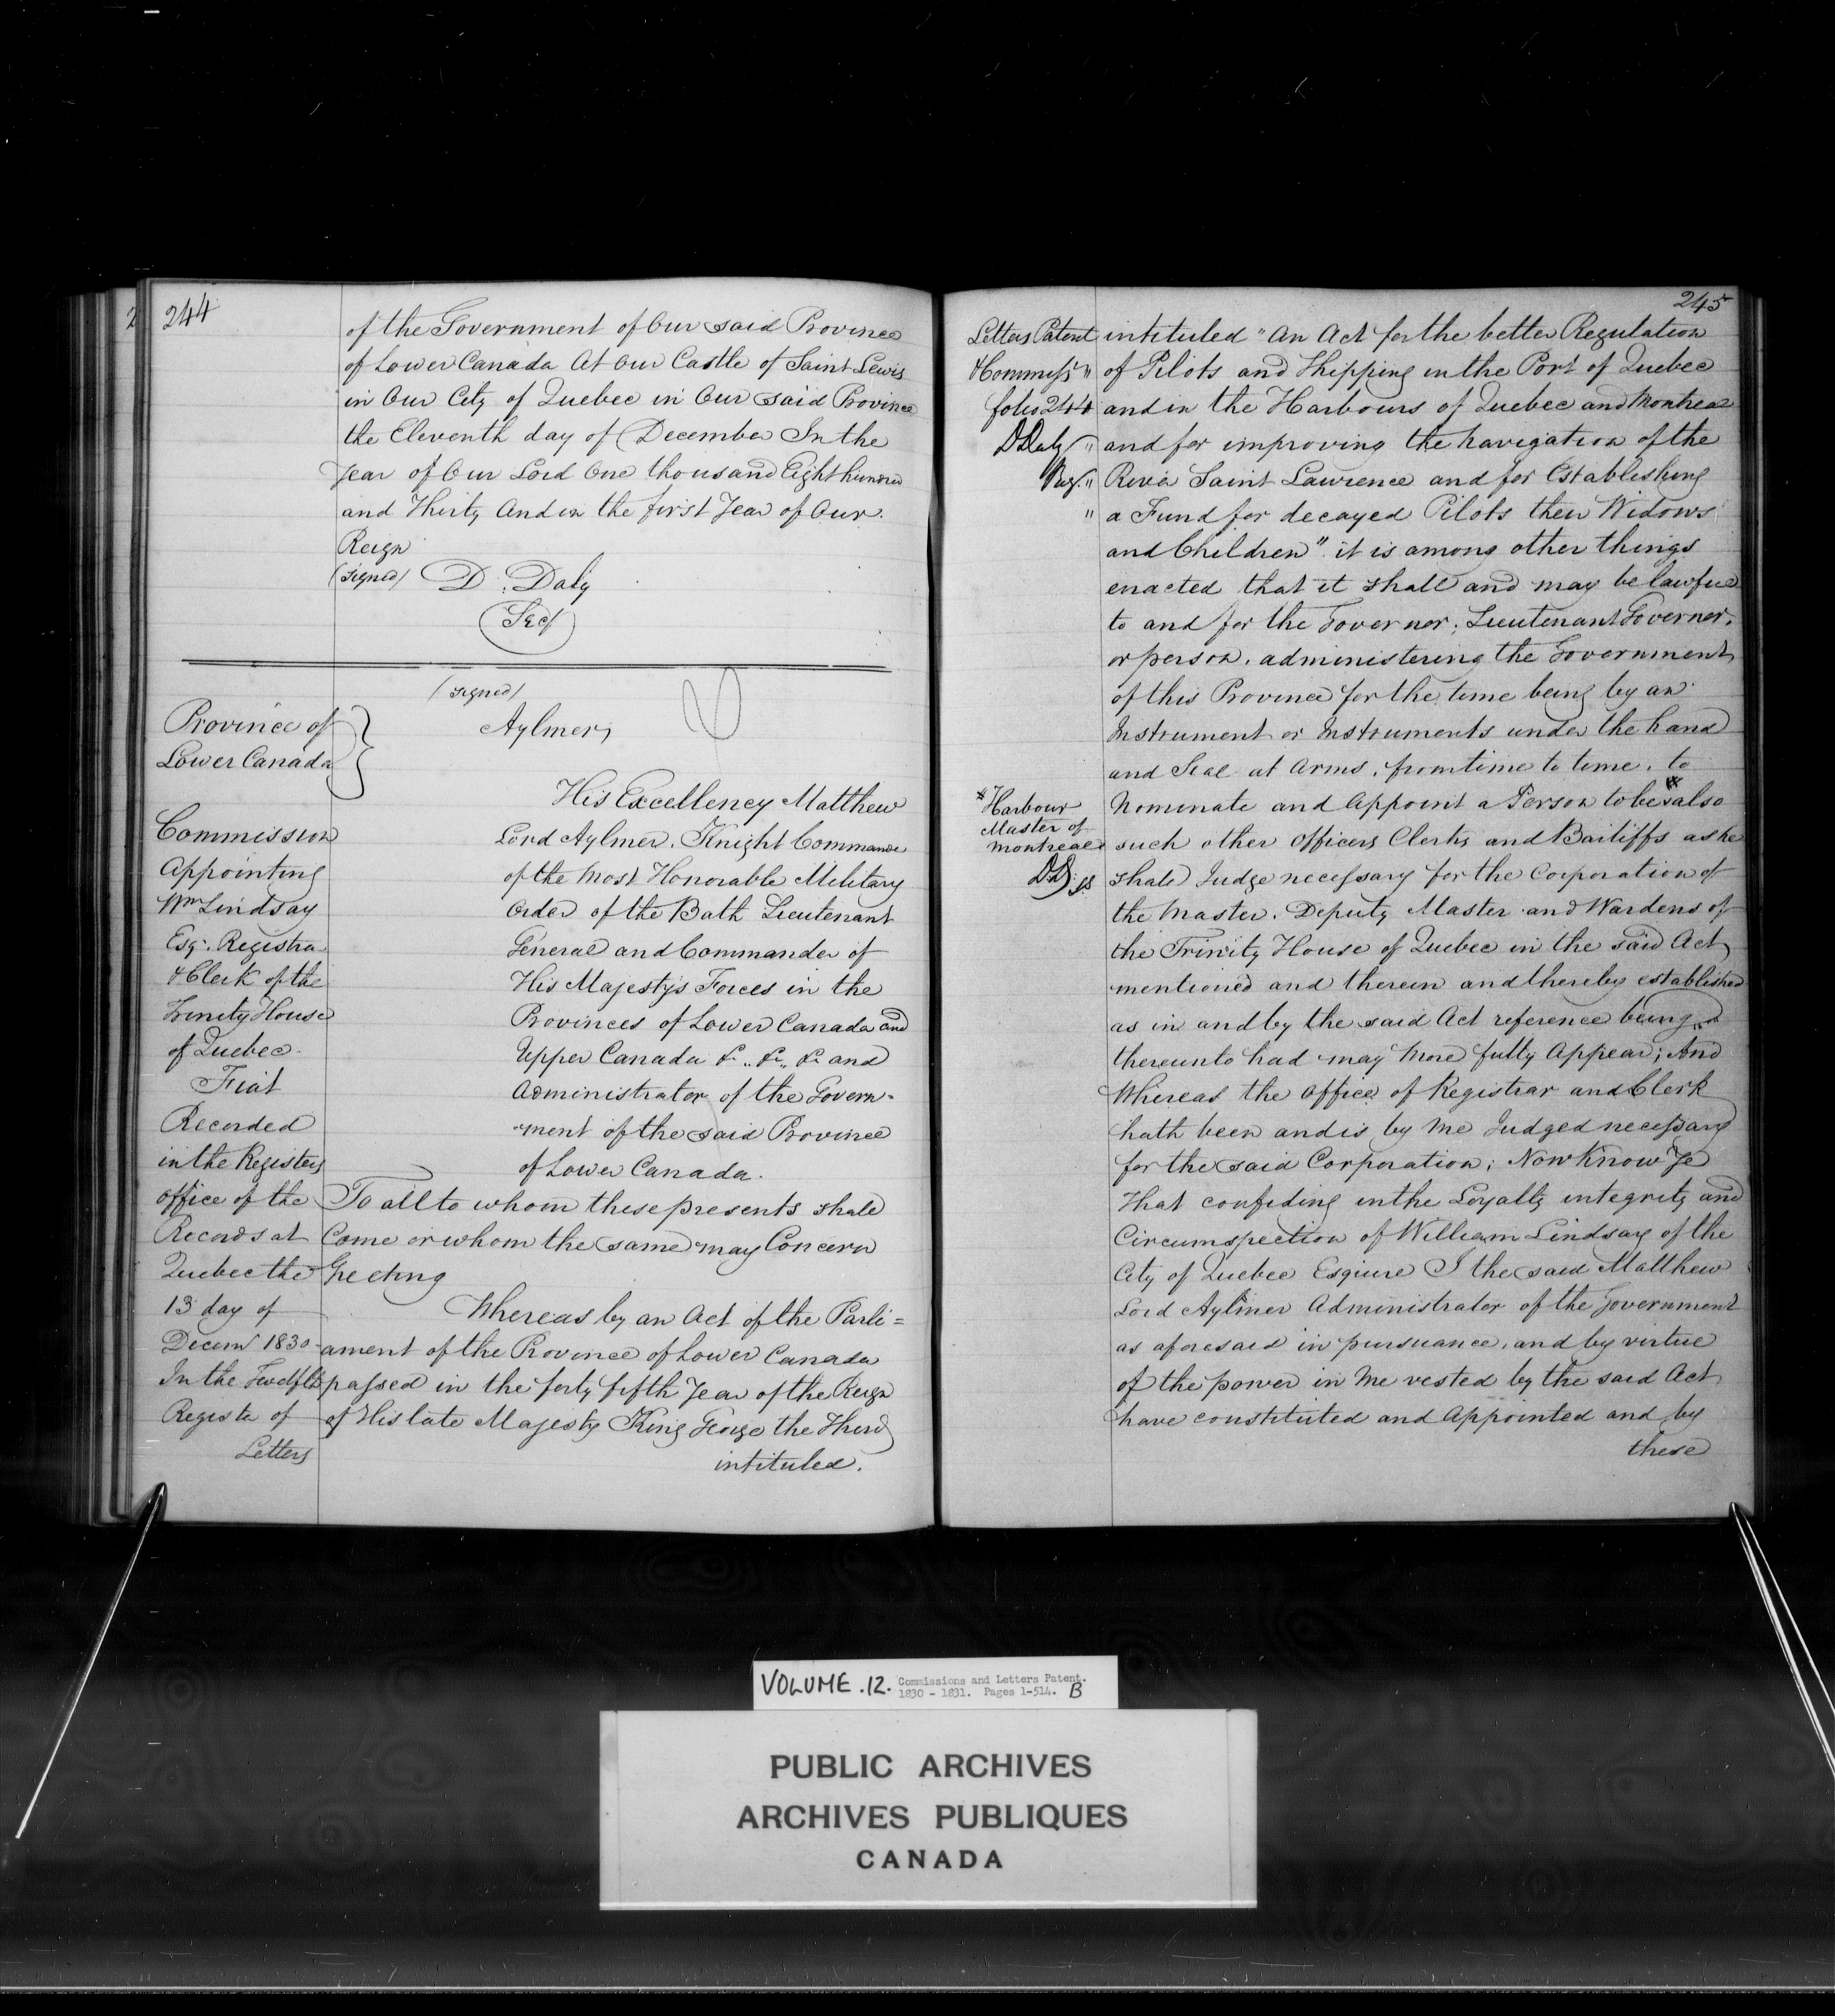 244
of the Government of Our said Province
of Lower Canada At Our Castle of Saint Lewis
in Our City of Quebec in Our said Province
the Eleventh day of December In the
Year of Our Lord One thousand Eight hundred
and Thirty And in the first Year of Our
Reign
(signed) D. Daly
Secy
(signed)
Aylmer,
Province of
Lower Canada
Commission
Appointing
Wm Lindsay
Esqr. Registra
& Clerk of the
Trinity House
of Quebec.
Fiat
Recorded
in the Registers
office of the
Records at
Quebec the
13 day of
Decemr 1830
In the Twelfth
Registr of
Letters
His Excellency Matthew
Lord Aylmer, Knight Commander
of the Most Honorable Military
Order of the Bath Lieutenant
General and Commander of
His Majestys Forces in the
Provinces of Lower Canada and
Upper Canada &c. &c. &c and
Administrator of the Govern=
=ment of the said Province
of Lower Canada.
To all to whom these presents shall
Come or whom the same may Concern
Greeting
Whereas by an Act of the Parli=
ament of the Province of Lower Canada
passed in the forty fifth Year of the Reign
of His late Majesty King George the Third
intituled.
245
Letters Patent
& Commisss "
folio 244
D Daly "
Reg. "
"
intituled "An Act for the better Regulation
of Pilots and Shipping in the Port of Quebec
and in the Harbours of Quebec and Montreal
and for improving the navigation of the
River Saint Lawrence and for Establishing
a Fund for decayed Pilots their Widows
and Children" it is among other things
enacted that it shall and may be lawful
to and for the Governor, Lieutenant Governor,
or person, administering the Government
of this Province for the time being by an
Instrument or Instruments under the hand
and Seal at Arms, from time to time, to
Nominate and Appoint a Person to be * also
* Harbour
Master of
Montreal
DD.
such other Officers Clerks and Bailiffs as he
shall Judge necessary for the Corporation of
the Master, Deputy Master and Wardens of
the Trinity House of Quebec in the said Act
mentioned and therein and thereby established
as in and by the said Act reference being
thereunto had may More fully Appear; And
Whereas the Office of Registrar and Clerk
hath been and is by Me Judged necessary
for the said Corporation; Now Know Ye
That confiding in the Loyalty integrity and
Circumspection of William Lindsay of the
City of Quebec Esquire I the said Matthew
Lord Aylmer Administrator of the Government
as aforesaid in pursuance, and by virtue
of the power in Me vested by the said Act
have constituted and Appointed and by
these
VOLUME .12. Commissions and Letters Patent.
1830 - 1831. Pages 1-514. B
PUBLIC ARCHIVES
ARCHIVES PUBLIQUES
CANADA